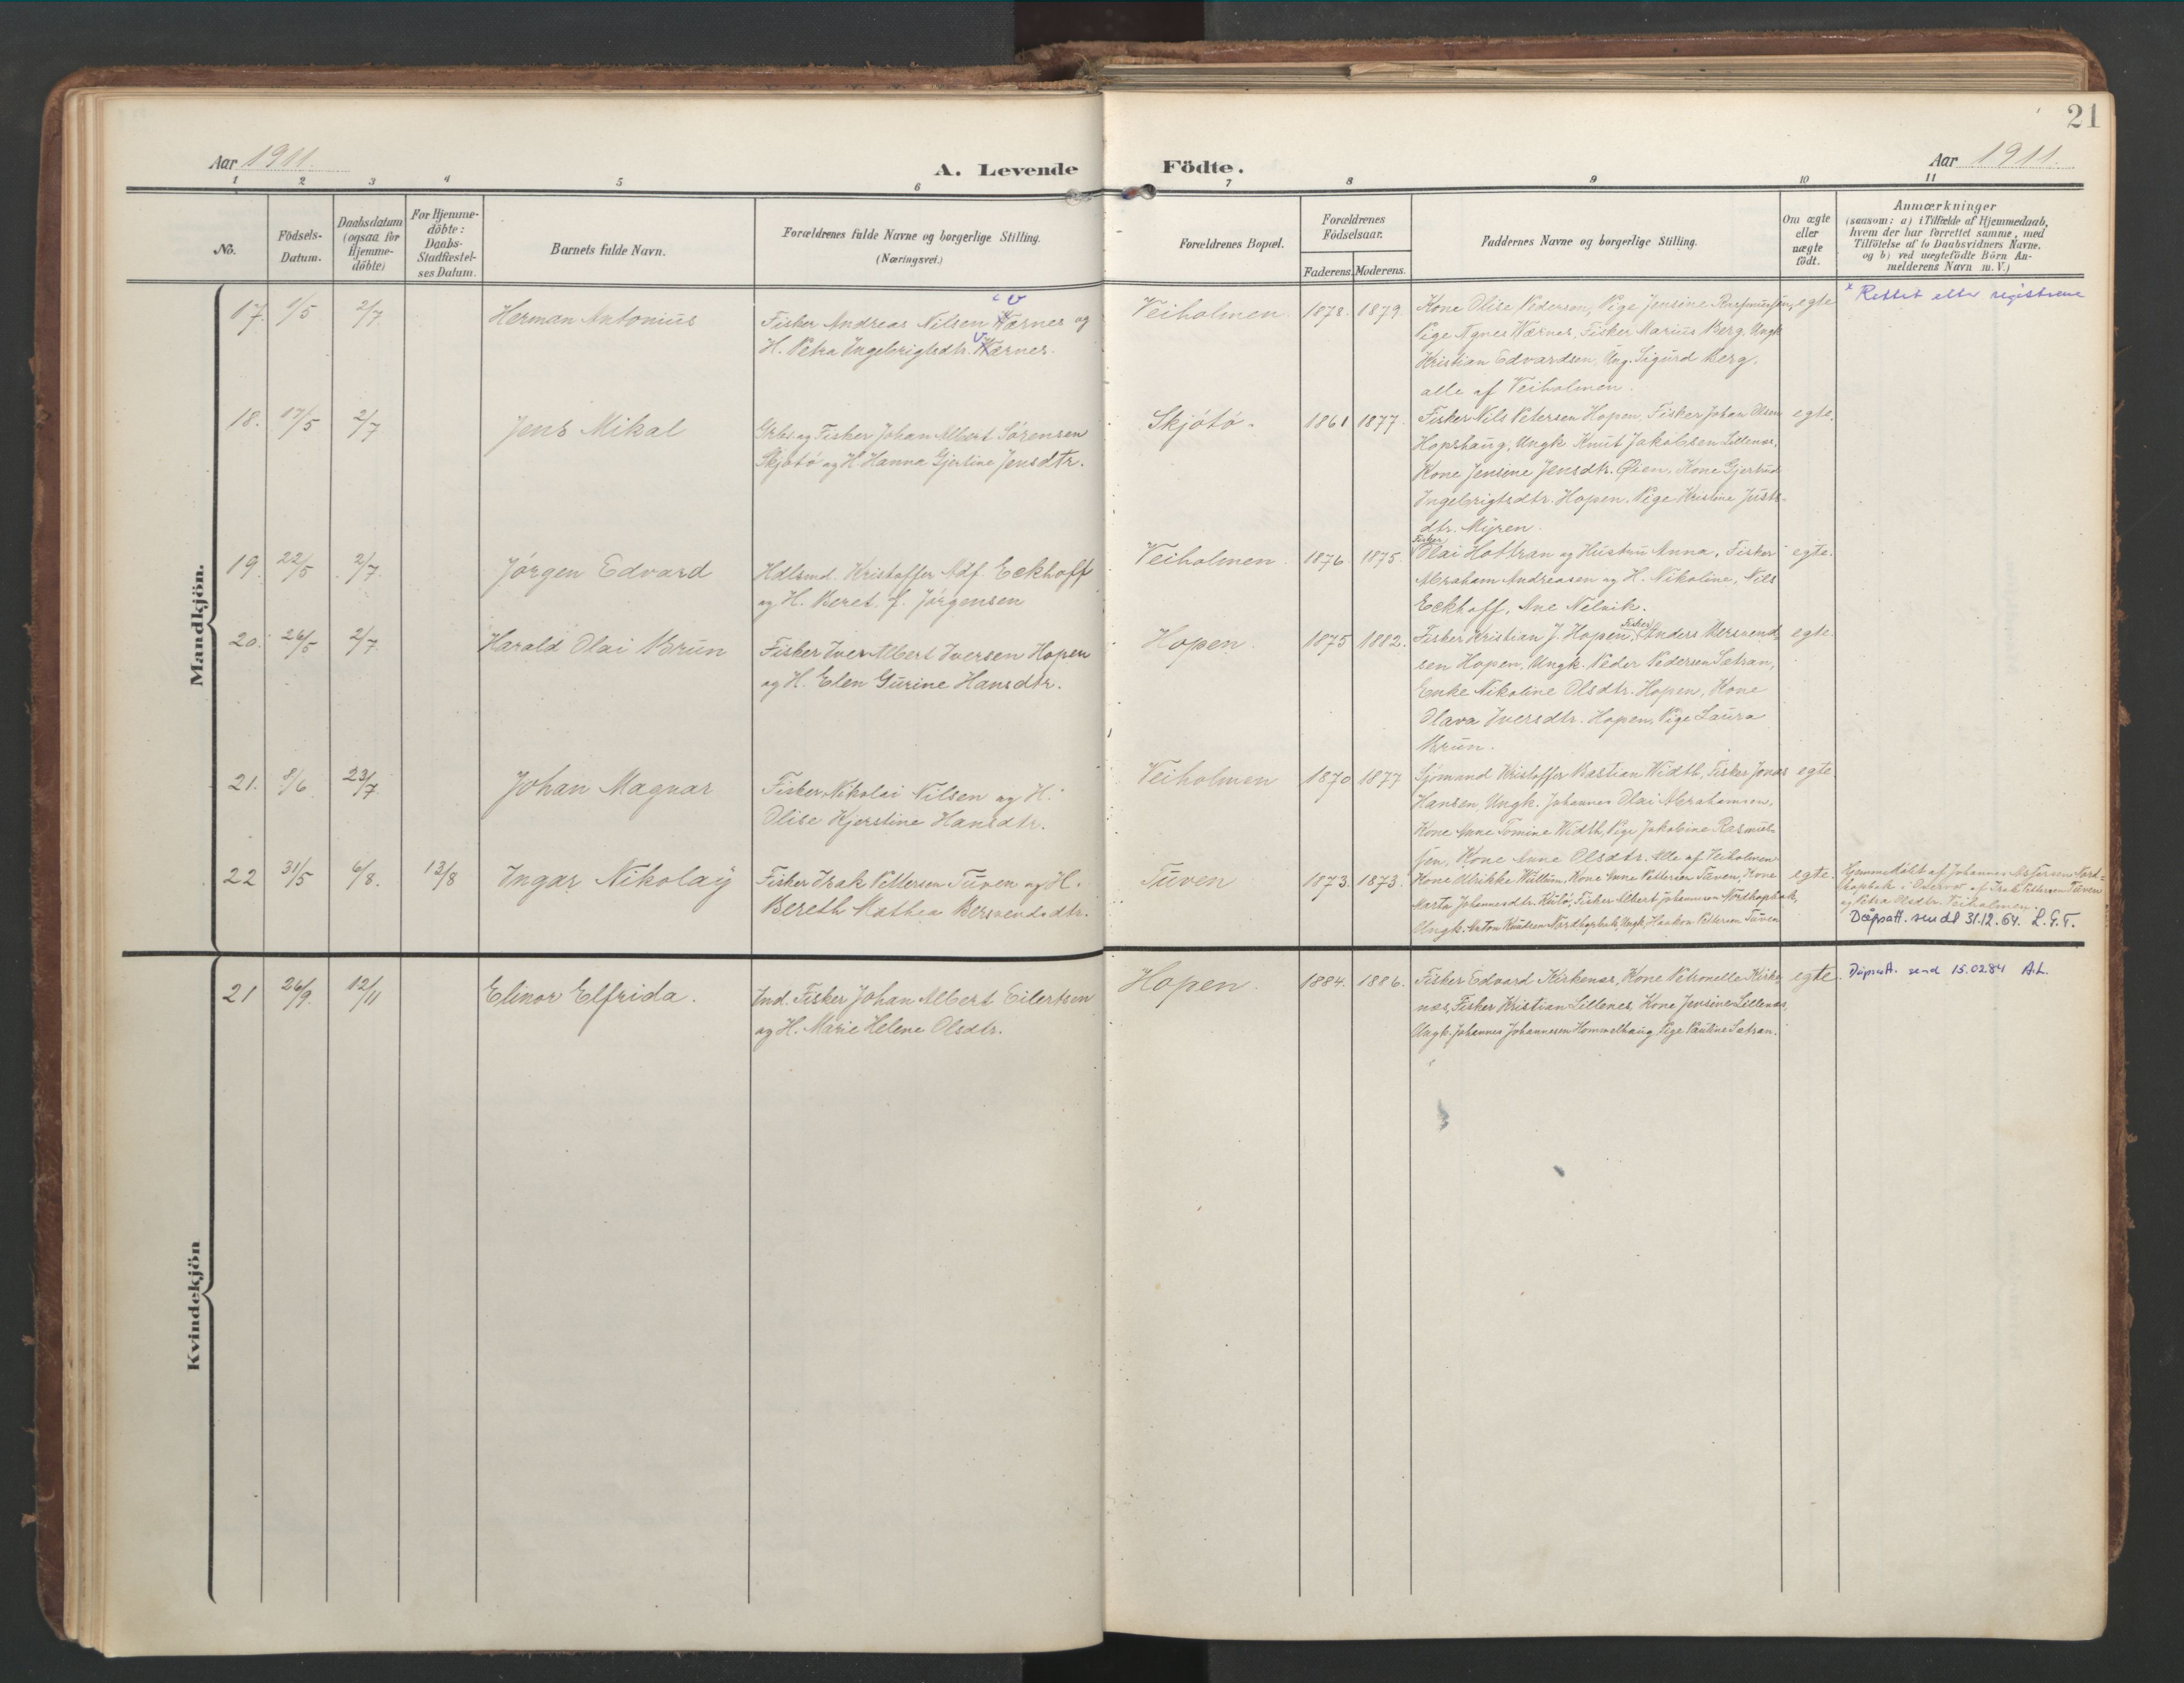 21
Aar 1911.
A. Levende Födte.
Aar 1911.
1 2 3 4 5 6 7 8 9 10 11
No.
Födsels-Datum.
Daabsdatum (ogsaa for Hjemme-döbte)
For Hjemme-döbte: Daabs-Stadfæstel-ses Datum.
Barnets fulde Navn.
Forældrenes fulde Navne og borgerlige Stilling.
(Næringsvei.)
Forældrenes Bopæl.
Forældrenes Födselsaar.
Faderens. Moderens.
Faddernes Navne og borgerlige Stilling.
Om ægte eller uægte födt.
Anmærkninger
(saasom: a) i Tilfælde af Hjemmedaab,
hvem der har forrettet samme, med
Tilföielse af to Daabsvidners Navne.
og b) ved uægtefödte Börn An-
melderens Navn m. V.)
Mandkjön.
17. 9/5 2/7 Herman Antonius
Fisker Andreas Nilsen Værnes og
H. Petra Ingebrigtsdtr. Værnes.
Veiholmen 1878. 1879.
Kone Olise Pedersen, Pige Jensine Rasmussen,
Pige Agnes Wærnes, Fisker Marius Berg, Ungk
Kristian Edvardsen, Ung. Sigurd Berg.
alle af Veiholmen.
egte
x Rettet etter registrene
18. 17/5 2/7 Jens Mikal
Grbr. og Fisker Johan Albert Sörensen
Skjötö og H. Hanna Gjertine Jensdtr.
Skjötö. 1861 1877.
Fisker Nils Petersen Hopen, Fisker Johan Olsen
Hopshaug, Ungk Knut Jakobsen Lillenes,
Kone Jensine Jensdtr. Øien, Kone Gjertrud
Ingebrigtsdtr. Hopen, Pige Kristine Justs-
dtr. Myren.
egte.
19. 22/5 2/7 Jörgen Edvard
Hdlsmd. Kristoffer Adf. Eckhoff
og H. Beret, f. Jörgensen
Veiholmen. 1876. 1875.
Fisker
Olai Hoftran og Hustru Anna, Fisker
Abraham Andreasen og H. Nikoline, Nils
Eckhoff, Ane Nelvik.
egte.
20. 26/5 2/7 Harald Olai Brun
Fisker Iver Albert Iversen Hopen
og H. Elen Gurine Hansdtr.
Hopen. 1875 1882.
Fisker Kristian J. Hopen, Fisker Anders Bersvend
sen Hopen, Ungk. Peder Pedersen Sætran,
Enke Nikoline Olsdtr. Hopen, Kone
Olava Iversdtr. Hopen, Pige Laura
Brun.
egte.
21. 8/6 23/7 Johan Magnar
Fisker Nikolai Nilsen og H.
Olise Kjerstine Hansdtr.
Veiholmen 1870 1877
Sjömand Kristoffer Bastian Width, Fisker Jonas
Hansen, Ungk. Johannes Olai Abrahamsen,
Kone Anne Tomine Width, Pige Jakobine Rasmus-
sen, Kone Anne Olsdtr. Alle af Veiholmen
egte.
22 31/5 6/8. 13/8 Ingar Nikolay
Fisker Isak Pettersen Tuven og H.
Bereth Mathea Bersvendsdtr.
Tuven 1873. 1873.
Kone Ulrikke Wullum, Kone Anne Pettersen Tuven, Kone
Marta Johannesdtr. Kulö, Fisker Albert Johannesen Nordhopbak,
Ungk. Anton Knudsen Nordhopbak, Ungk. Haakon Pettersen Tuven
egte.
Hjemmedöbt af Johannes Nord-
hopbak i Overvær af Isak Pettersen Tuven
og Petra Olsdtr. Veiholmen.
Dåpsatt. sendt 31.12.64. L.G.F.
Kvindekjön
21 26/9. 12/11 Elinor Elfrida.
Ind. Fisker Johan Albert Eilertsen
og H. Marie Helene Olsdtr.
Hopen. 1884. 1886.
Fisker Edvard Kirkenes, Kone Petronelle Kirke-
næs, Fisker Kristian Lillenes, Kone Jensine Lillenes,
Ungk. Johannes Johannesen Hommelhaug, Pige Pauline Sætran.
egte.
Dåpsatt. send 15.0284 A.L.